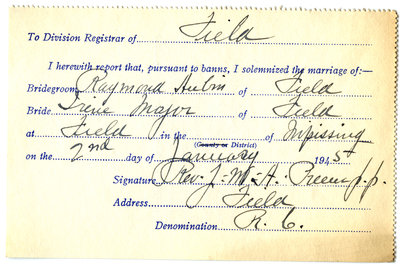 To Division Registrar of Field
I herewith report that, pursuant to banns, I solemnized the marriage of:—
Bridegroom Raymond Aubin of Field
Bride Irene Major of Field
at Field in the (County or District) of Nipissing
on the 2nd day of January 1945
Signature Rev. J.-M.-A. p.p.
Address Field
Denomination R. C.